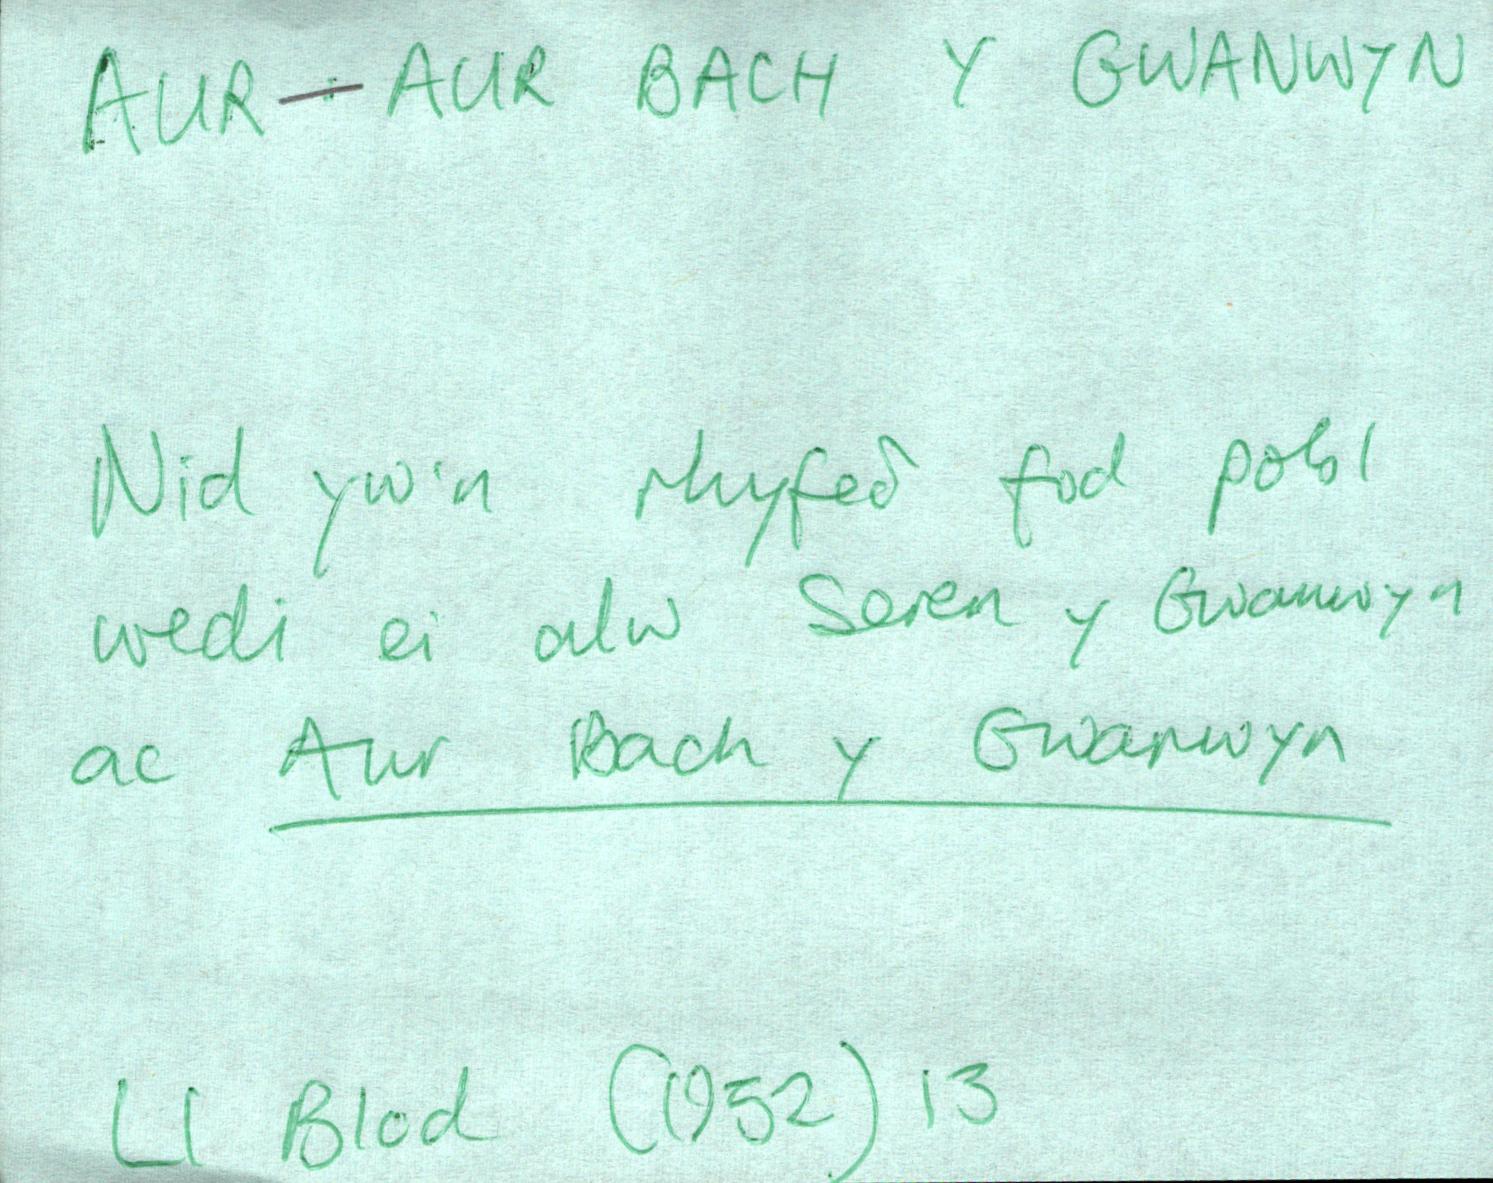 AUR — AUR BACH Y GWANWYN
Nid yw'n rhyfeδ fod pobl
wedi ei alw Seren y Gwanwyn
ac Aur Bach y Gwanwyn
Ll Blod (1952) 13